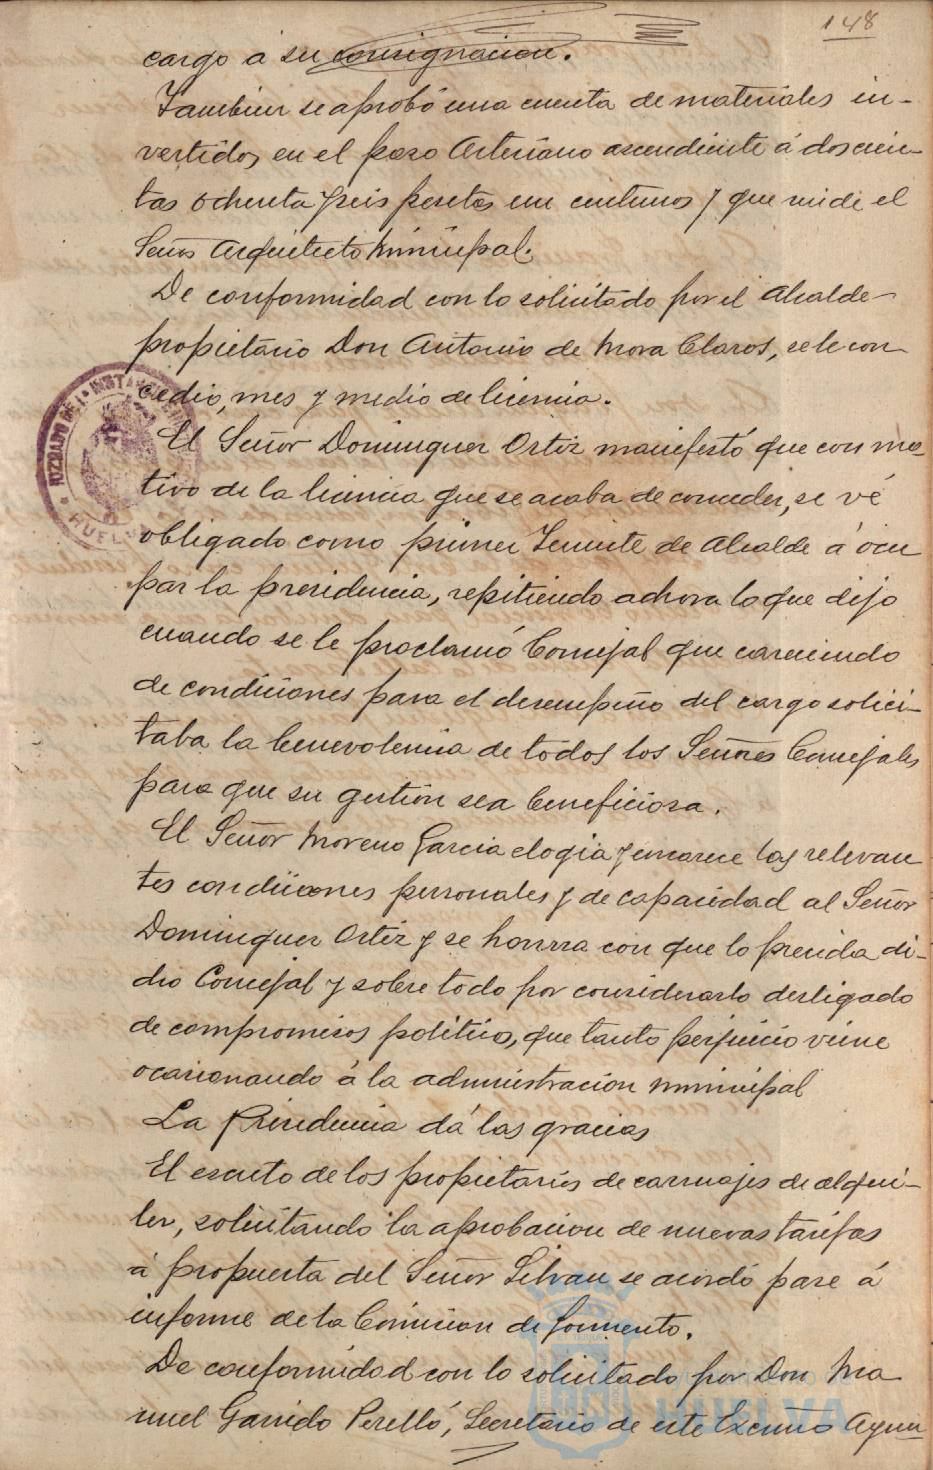 148
cargo á su consignacion.
Tambien se aprobó una cuenta de materiales in-
vertidos en el pozo Arteriano ascendiente á doscien-
tas ochenta y seis pesetas un centimos y que rinde el
Señor Arquitecto Municipal.
De conformidad con lo solicitado por el Alcalde
propietario Don Antonio de Mora Claros, se le con
cedio, mes y medio de licencia.
El Señor Dominguez Ortiz manifestó que con mo-
tivo de la licencia que se acaba de conceder, se vé
obligado como primer Teniente de Alcalde á ocu
par la presidencia, repitiendo achora lo que dijo
cuando se le proclamó Concejal que careciendo
de condiciones para el desempeño del cargo solici-
taba la benevolencia de todos los Señores Concejales
para que su gestión sea beneficiosa.
El Señor Moreno Garcia elogia y encarece las relevan
tes condiciones personales y de capacidad al Señor
Dominguez Ortiz y se honrra con que lo presida di-
cho Concejal y sobre todo por considerarlo desligado
de compromisos politicos, que tanto perjuicio viene
ocasionando á la administracion municipal
La Presidencia dá las gracias
El escrito de los propietarios de carruajes de alqui-
ler, solicitando la aprobacion de nuevas tarifas
á propuesta del Señor Silvan se acordó pase á
informe de la Comision de fomento.
De conformidad con lo solicitado por Don Ma
nuel Garrido Perelló, Secretario de este Excmo Ayun
JUZGADO DE 1ª INSTANCIA
HUELVA
HUELVA